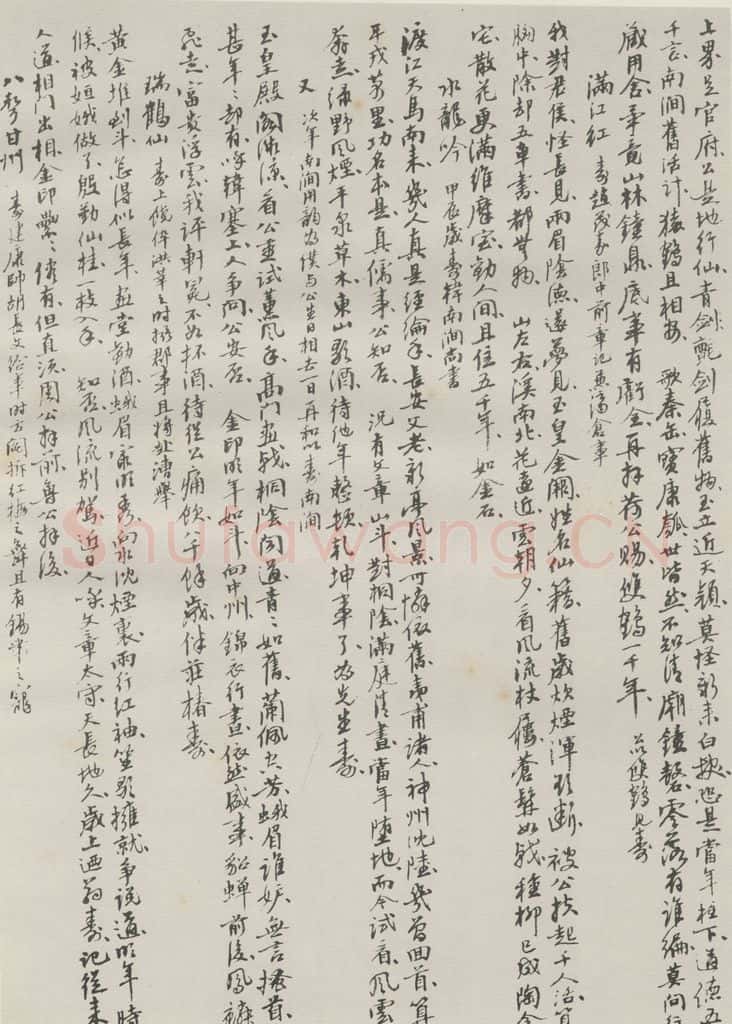 上界足官府公是地行仙青劍氈劍履舊物玉立近天顏莫怪新來白髮恐是當年柱下道德五
千言南澗舊活計猿鶴且相安 歌秦缶寶康瓠世皆然不知清廟鐘磬零落有誰編莫問行
藏用舍畢竟山林鐘鼎底事有虧全再拜荷公賜雙鶴一千年 公以雙鶴見壽
滿江紅 壽趙茂嘉郎中前章記兼濟倉事
我對君侯怪長見兩眉陰德還夢見玉皇金闕姓名仙籍舊歲炊煙渾欲斷被公扶起千人活算
胸中除却五車書都無物 山左右溪南北花遠近雲朝夕看風流杖屨蒼髯如戟種柳已成陶令
宅散花更滿維摩室勸人間且住五千年如金石
水龍吟 甲辰歲壽韓南澗尚書
渡江天馬南來幾人真是經綸手長安父老新亭風景可憐依舊夷甫諸人神州沈陸幾曾回首算
平戎萬里功名本是真儒事公知否 況有文章山斗對桐陰滿庭清晝當年墮地而今試看風雲
奔走綠野風煙平泉草木東山歌酒待他年整頓乾坤事了為先生壽
又 次年南澗用韻為僕與公生日相去一日再和以壽南澗
玉皇殿閣微涼看公重試薰風手高門畫戟桐陰閣道青青如舊蘭佩空芳蛾眉誰妒無言搔首
甚年年却有呼韓塞上人爭問公安否 金印明年如斗向中州錦衣行晝依然盛事貂蟬前後鳳麟
飛走富貴浮雲我評軒冕不如杯酒待從公痛飲八千餘歲伴莊椿壽
瑞鶴仙 壽上饒倅洪莘之時攝郡事且將赴漕舉
黃金堆到斗怎得似長年畫堂勸酒蛾眉最明秀向水沈煙裏兩行紅袖笙歌擁就爭說道明年時
候被姮娥做了殷勤仙桂一枝入手 知否風流別駕近日人呼文章太守天長地久歲上迺翁壽記從來
人道相門出相金印纍纍儘有但直須周公拜前魯公拜後
八聲甘州 壽建康帥胡長文給事時方閱折紅梅之舞且有錫帶之寵
Shufawang.CN